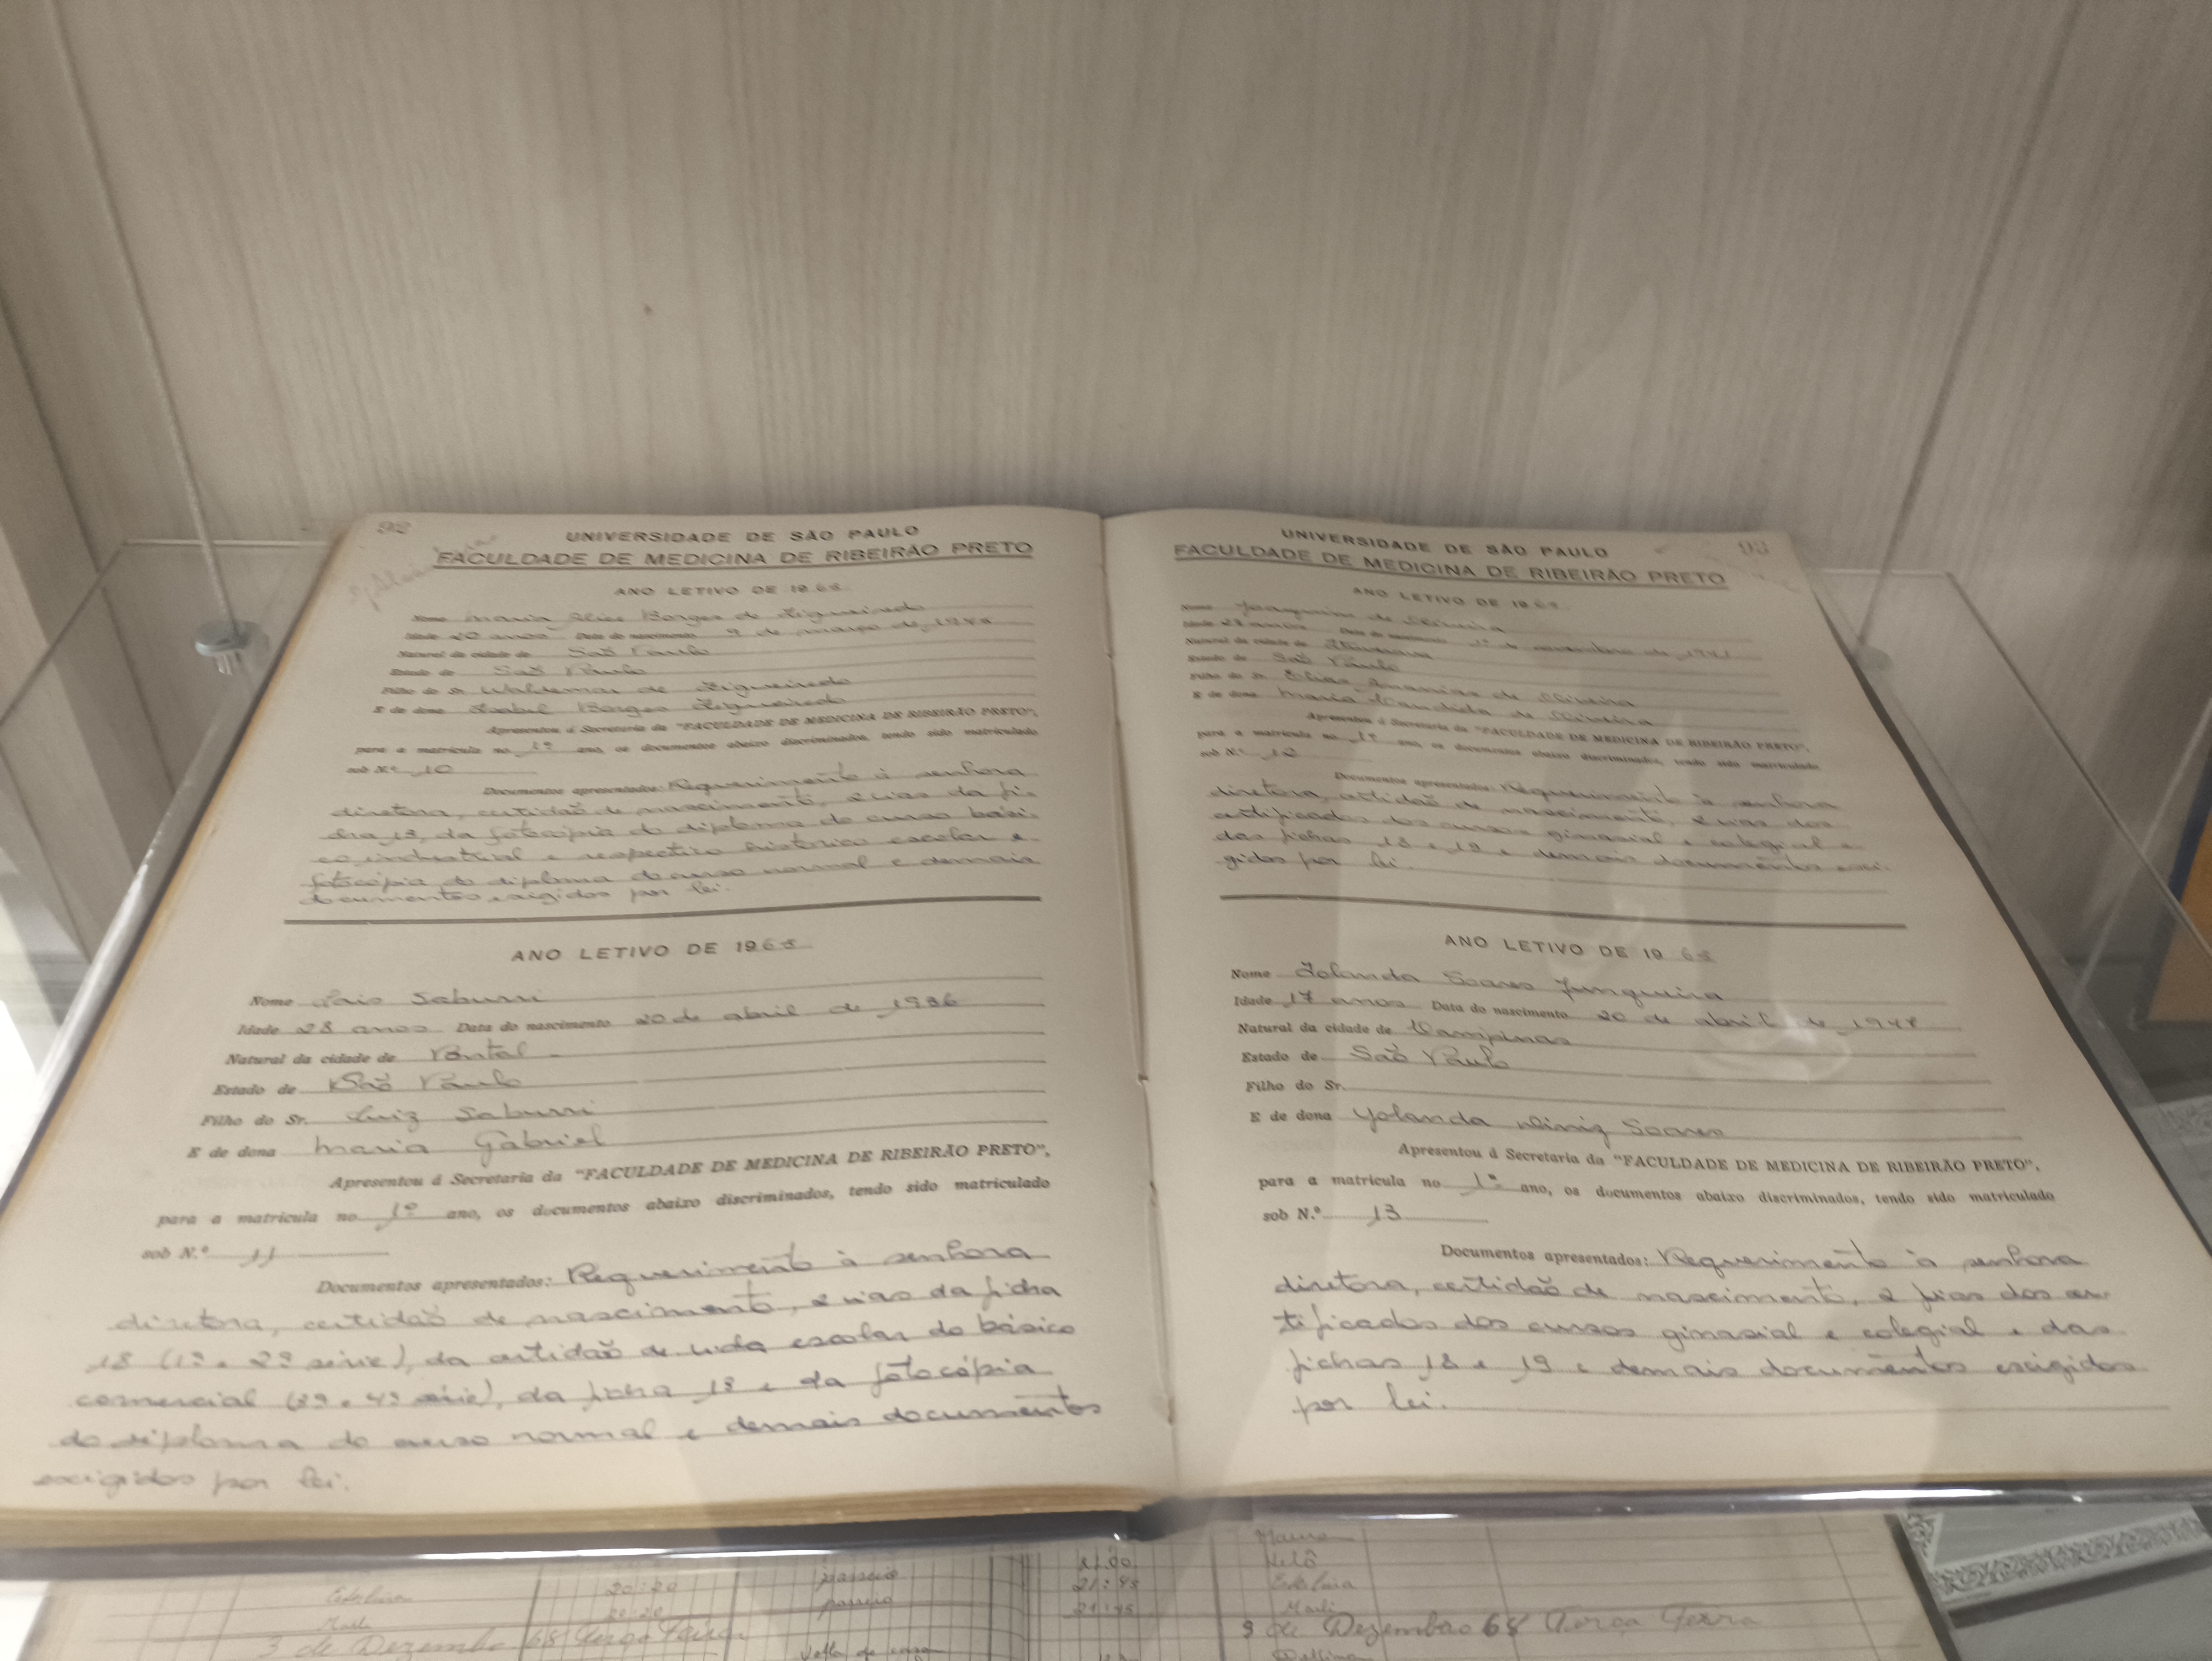 92
UNIVERSIDADE DE SÃO PAULO
FACULDADE DE MEDICINA DE RIBEIRÃO PRETO
ANO LETIVO DE 1965
Nome Maria Alice Borges de Figueiredo
Idade 20 anos Data do nascimento 9 de março de 1944
Natural da cidade de São Paulo
Estado de São Paulo
Filho do Sr. Waldemar de Figueiredo
E de dona Isabel Borges Figueiredo
Apresentou á Secretaria da "FACULDADE DE MEDICINA DE RIBEIRÃO PRETO",
para a matrícula no 1º ano, os documentos abaixo discriminados, tendo sido matriculado
sob N.º 10
Documentos apresentados: Requerimento à senhora
diretora, certidão de nascimento, 2 vias da fi-
cha 18, da fotocópia do diploma do curso bási-
co industrial e respectivo histórico escolar e
fotocópia do diploma do curso normal e demais
documentos exigidos por lei.
ANO LETIVO DE 1965
Nome Lais Saburri
Idade 28 anos Data do nascimento 20 de abril de 1936
Natural da cidade de Pontal
Estado de São Paulo
Filho do Sr. Luiz Saburri
E de dona Maria Gabriel
Apresentou á Secretaria da "FACULDADE DE MEDICINA DE RIBEIRÃO PRETO",
para a matrícula no 1º ano, os documentos abaixo discriminados, tendo sido matriculado
sob N.º 11
Documentos apresentados: Requerimento à senhora
diretora, certidão de nascimento, 2 vias da ficha
18 (1ª e 2ª série), da certidão de vida escolar do básico
comercial (3ª e 4ª série), da ficha 18 e da fotocópia
do diploma do curso normal e demais documentos
exigidos por lei.
93
UNIVERSIDADE DE SÃO PAULO
FACULDADE DE MEDICINA DE RIBEIRÃO PRETO
ANO LETIVO DE 1965
Nome Joaquina de Oliveira
Idade 23 anos Data do nascimento 1º de novembro de 1941
Natural da cidade de
Estado de São Paulo
Filho do Sr. Elias Ananias de Oliveira
E de dona Maria Candida de Oliveira
Apresentou á Secretaria da "FACULDADE DE MEDICINA DE RIBEIRÃO PRETO",
para a matrícula no 1º ano, os documentos abaixo discriminados, tendo sido matriculado
sob N.º 12
Documentos apresentados: Requerimento à senhora
diretora, certidão de nascimento, 2 vias dos
certificados dos cursos ginasial e colegial e
das fichas 18 e 19 e demais documentos exi-
gidos por lei.
ANO LETIVO DE 1965
Nome Iolanda Soares Junqueira
Idade 17 anos Data do nascimento 20 de abril de 1947
Natural da cidade de Campinas
Estado de São Paulo
Filho do Sr.
E de dona Yolanda Diniz Soares
Apresentou á Secretaria da "FACULDADE DE MEDICINA DE RIBEIRÃO PRETO",
para a matrícula no 1º ano, os documentos abaixo discriminados, tendo sido matriculado
sob N.º 13
Documentos apresentados: Requerimento à senhora
diretora, certidão de nascimento, 2 vias dos cer-
tificados dos cursos ginasial e colegial e das
fichas 18 e 19 e demais documentos exigidos
por lei.
21:00
20:20 passeio 21:45
20:20 passeio 21:45 Marli
3 de Dezembro 68 Terça Feira
Volta de casa
9 de Dezembro 68 Terça Feira